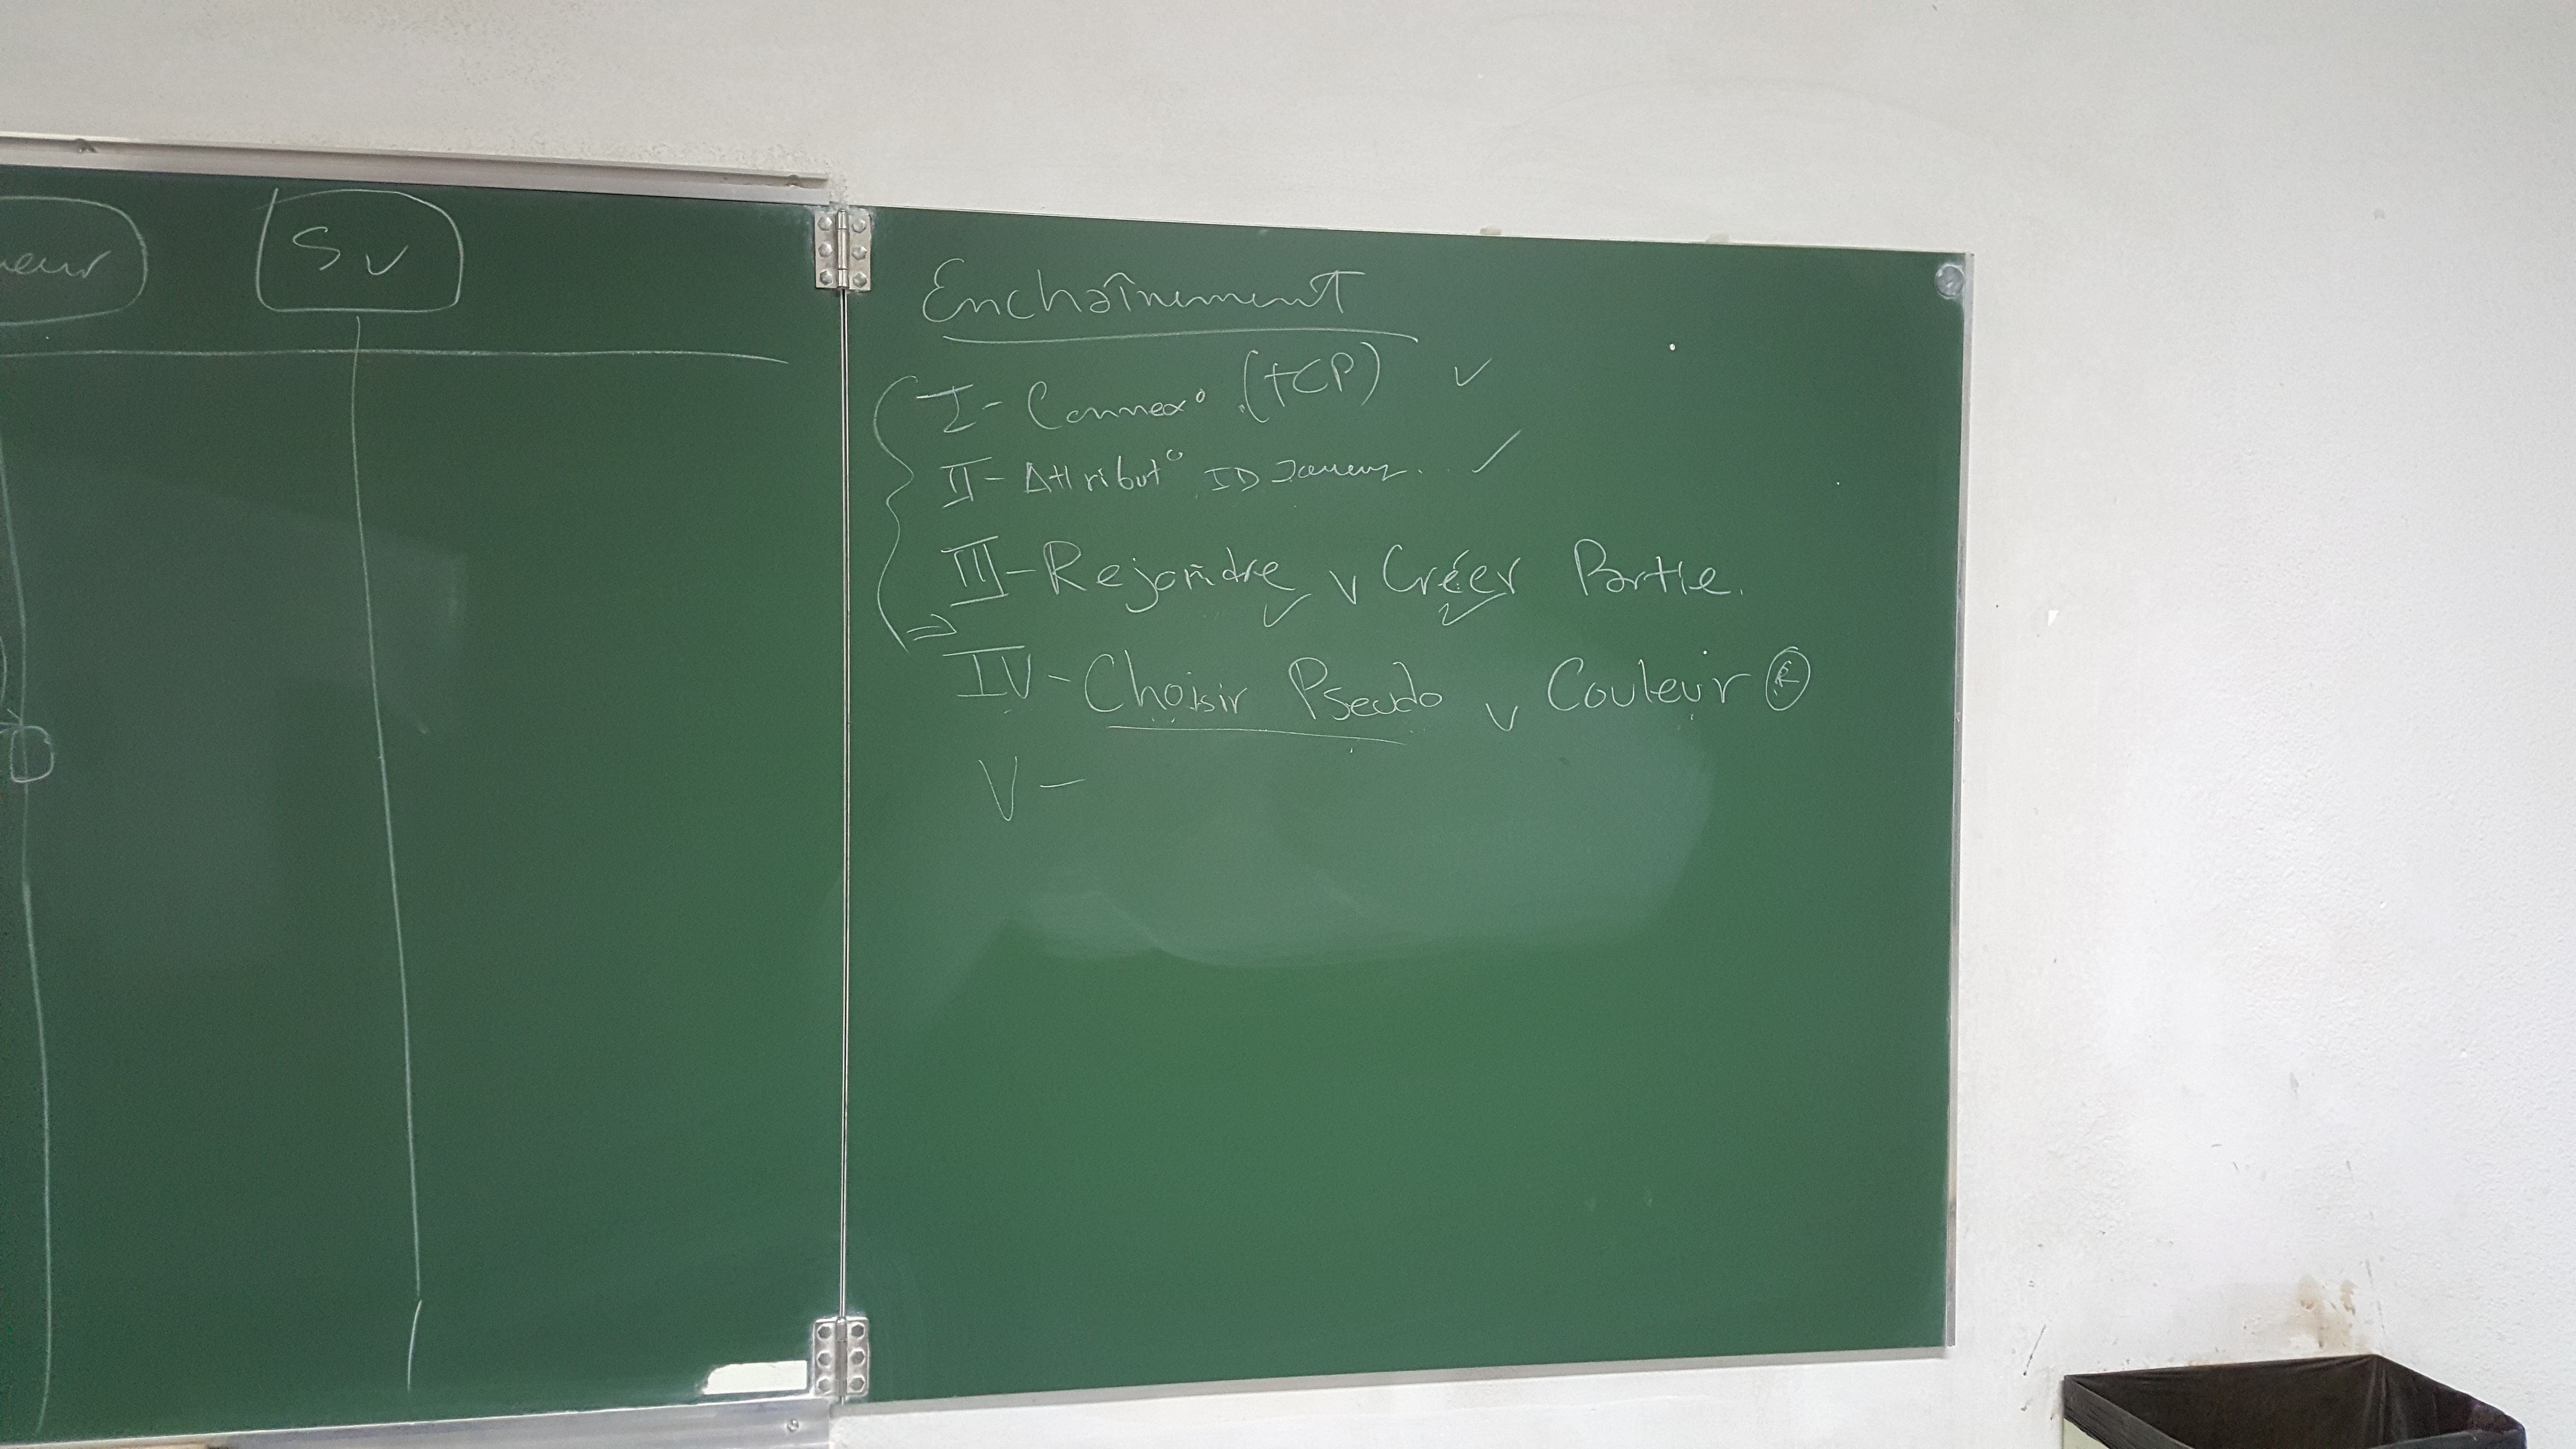 neur
Sv
Enchaînement
I- Connex° (TCP) ✓
II- Attribut° ID Joueur. ✓
III- Rejoindre ∨ Créer Partie.
⇒
IV- Choisir Pseudo ∨ Couleur ®
V-